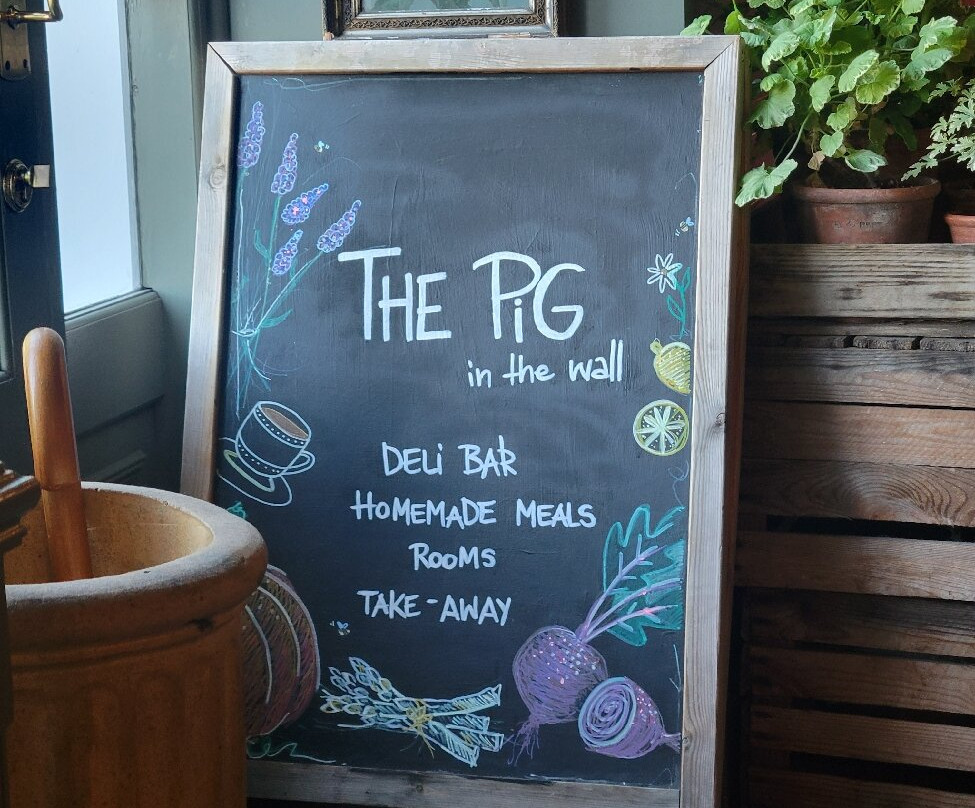 THE PiG
in the wall
DELi BAR
HOMEMADE MEALS
ROOMS
TAKE-AWAY